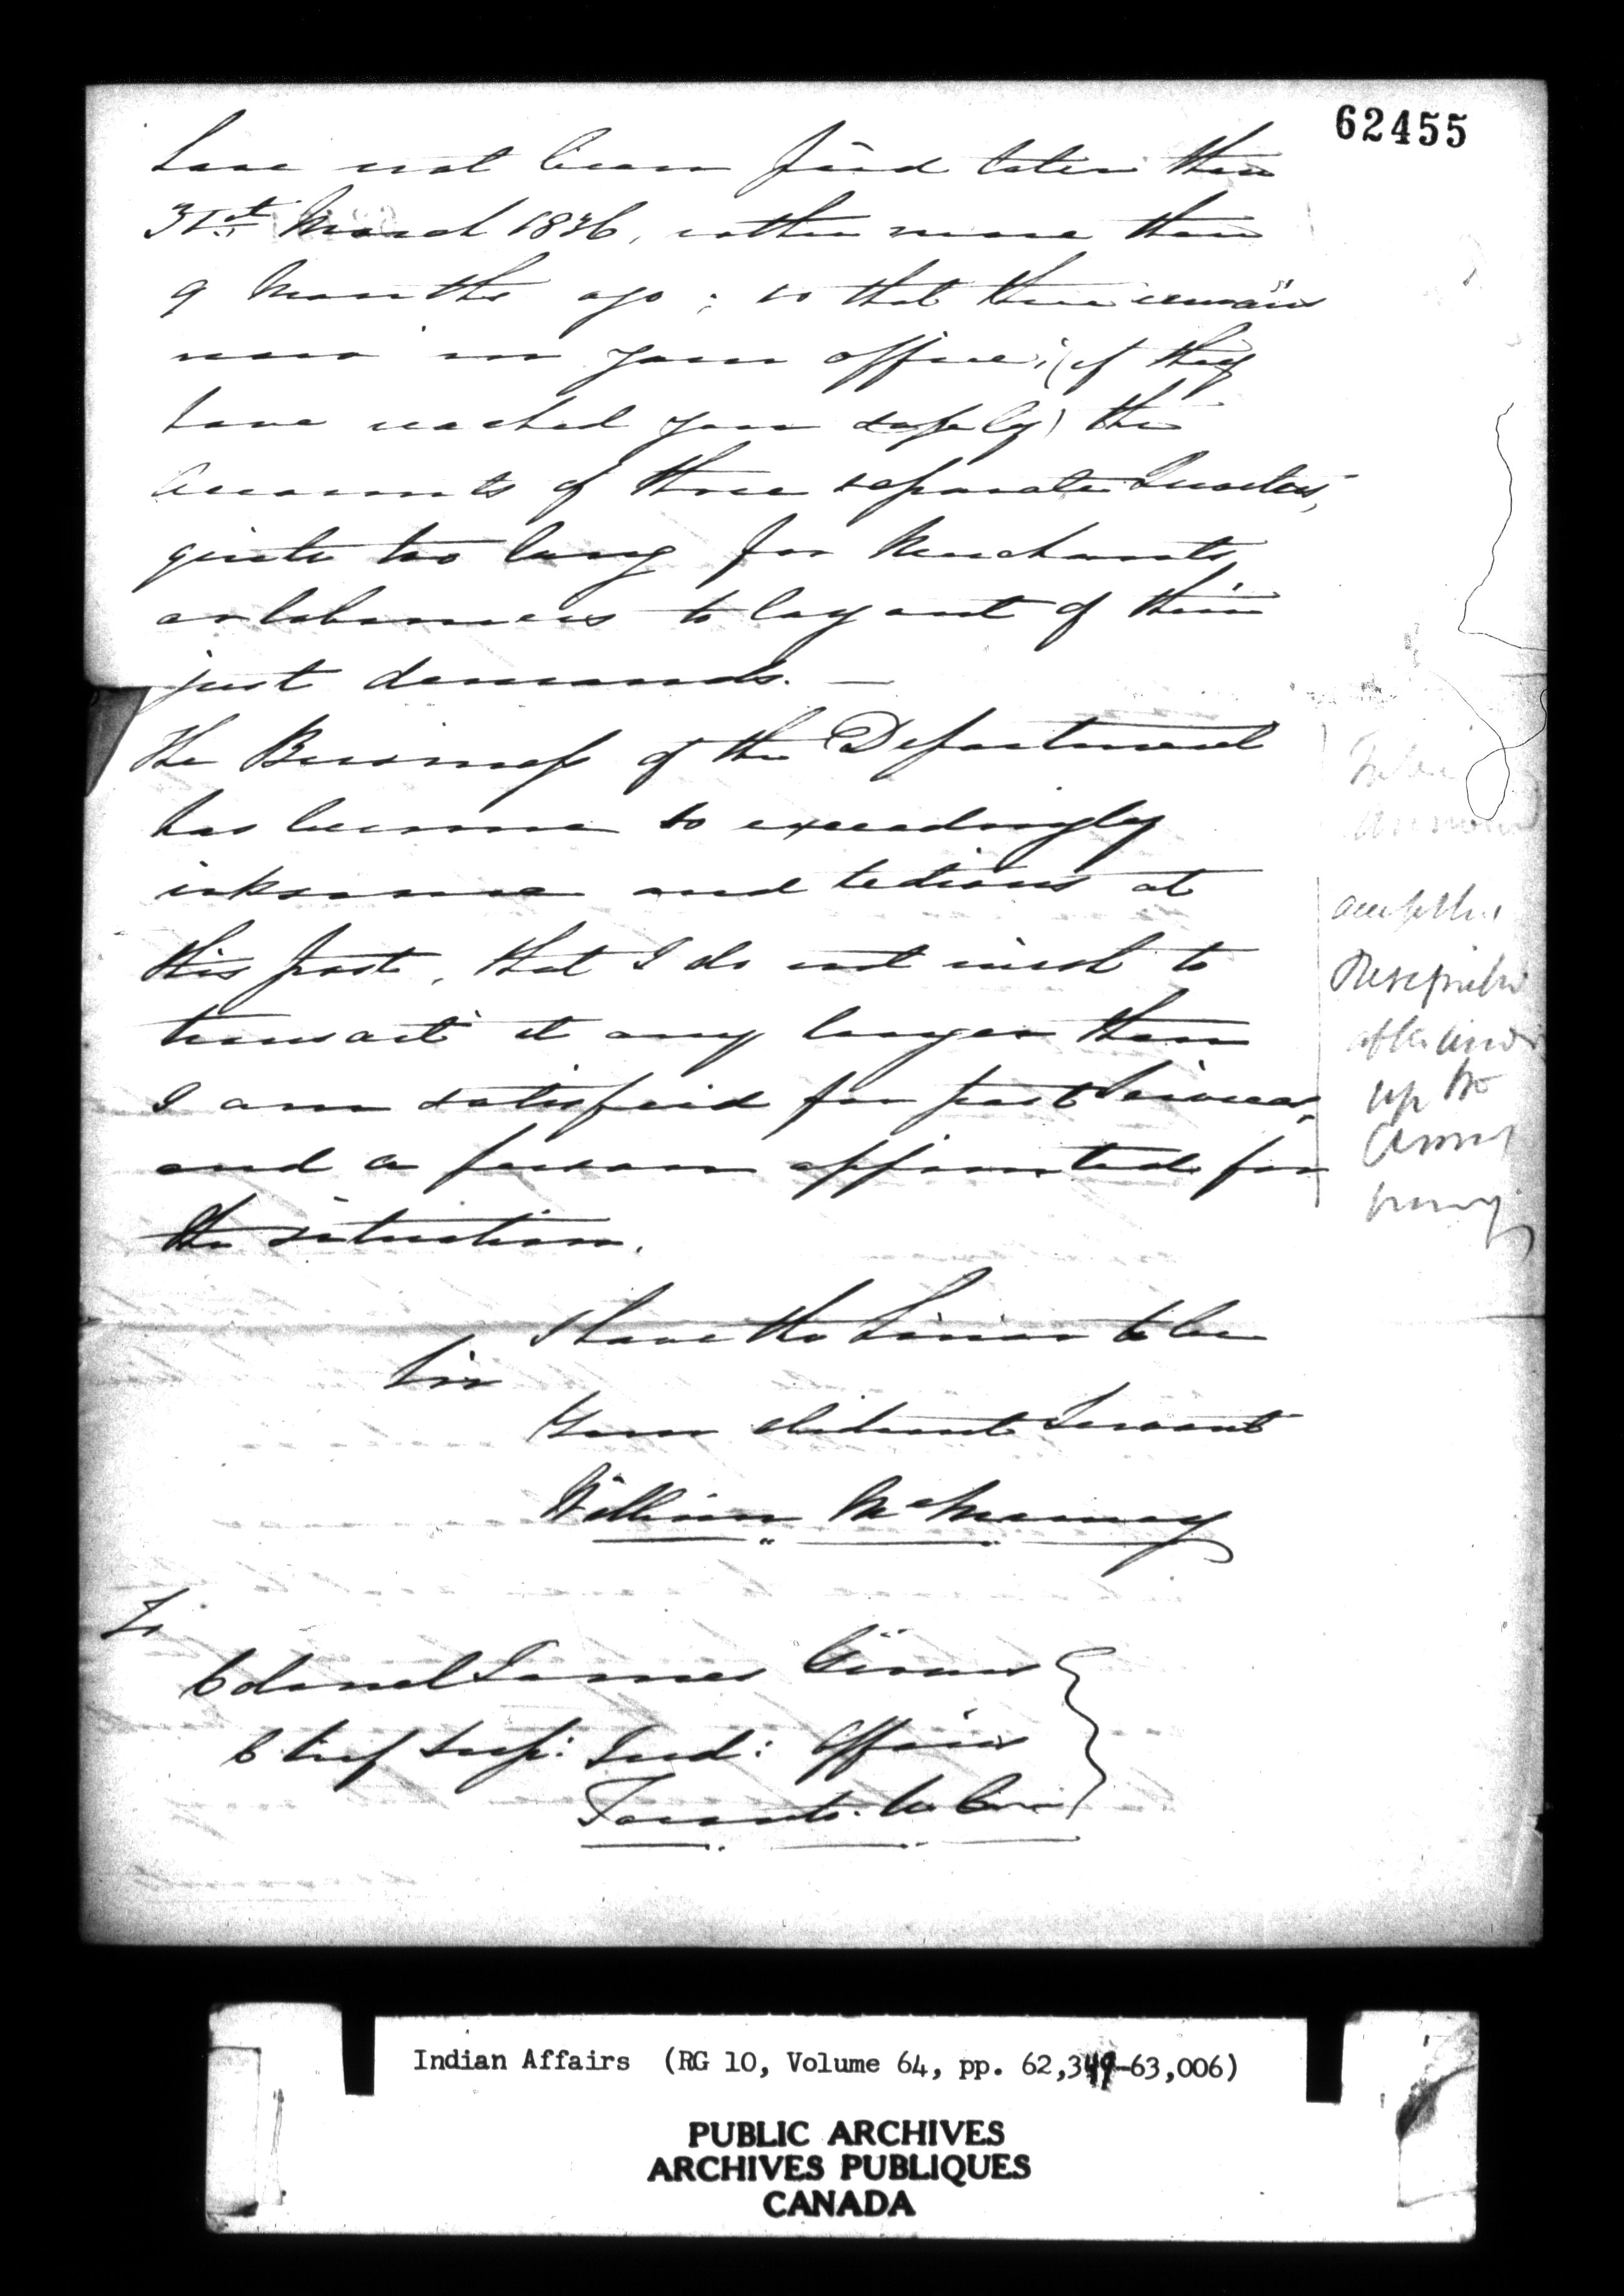 62455
have not been paid later than
31st. March 1836, rather more than
9 Months ago; so that there remain
now in your office, (if they
have reached you safely) the
Accounts of three separate Quarters,
quite too long for Merchants
or labourers to lay out of their
just demands. —
The Business of the Department
has become so exceedingly
irksome and tedious at
this post, that I do not wish to
transact it any longer than
I am satisfied for past Services,
and a person appointed for
the situation.
I have the honor to be
Sir
Your obedient Servant
William McMurray
To
Colonel James Givins
Chief Sup: Ind: Affairs
Toronto. U. Can
accept his
Resignation
up to
Indian Affairs (RG 10, Volume 64, pp. 62,349-63,006)
PUBLIC ARCHIVES
ARCHIVES PUBLIQUES
CANADA